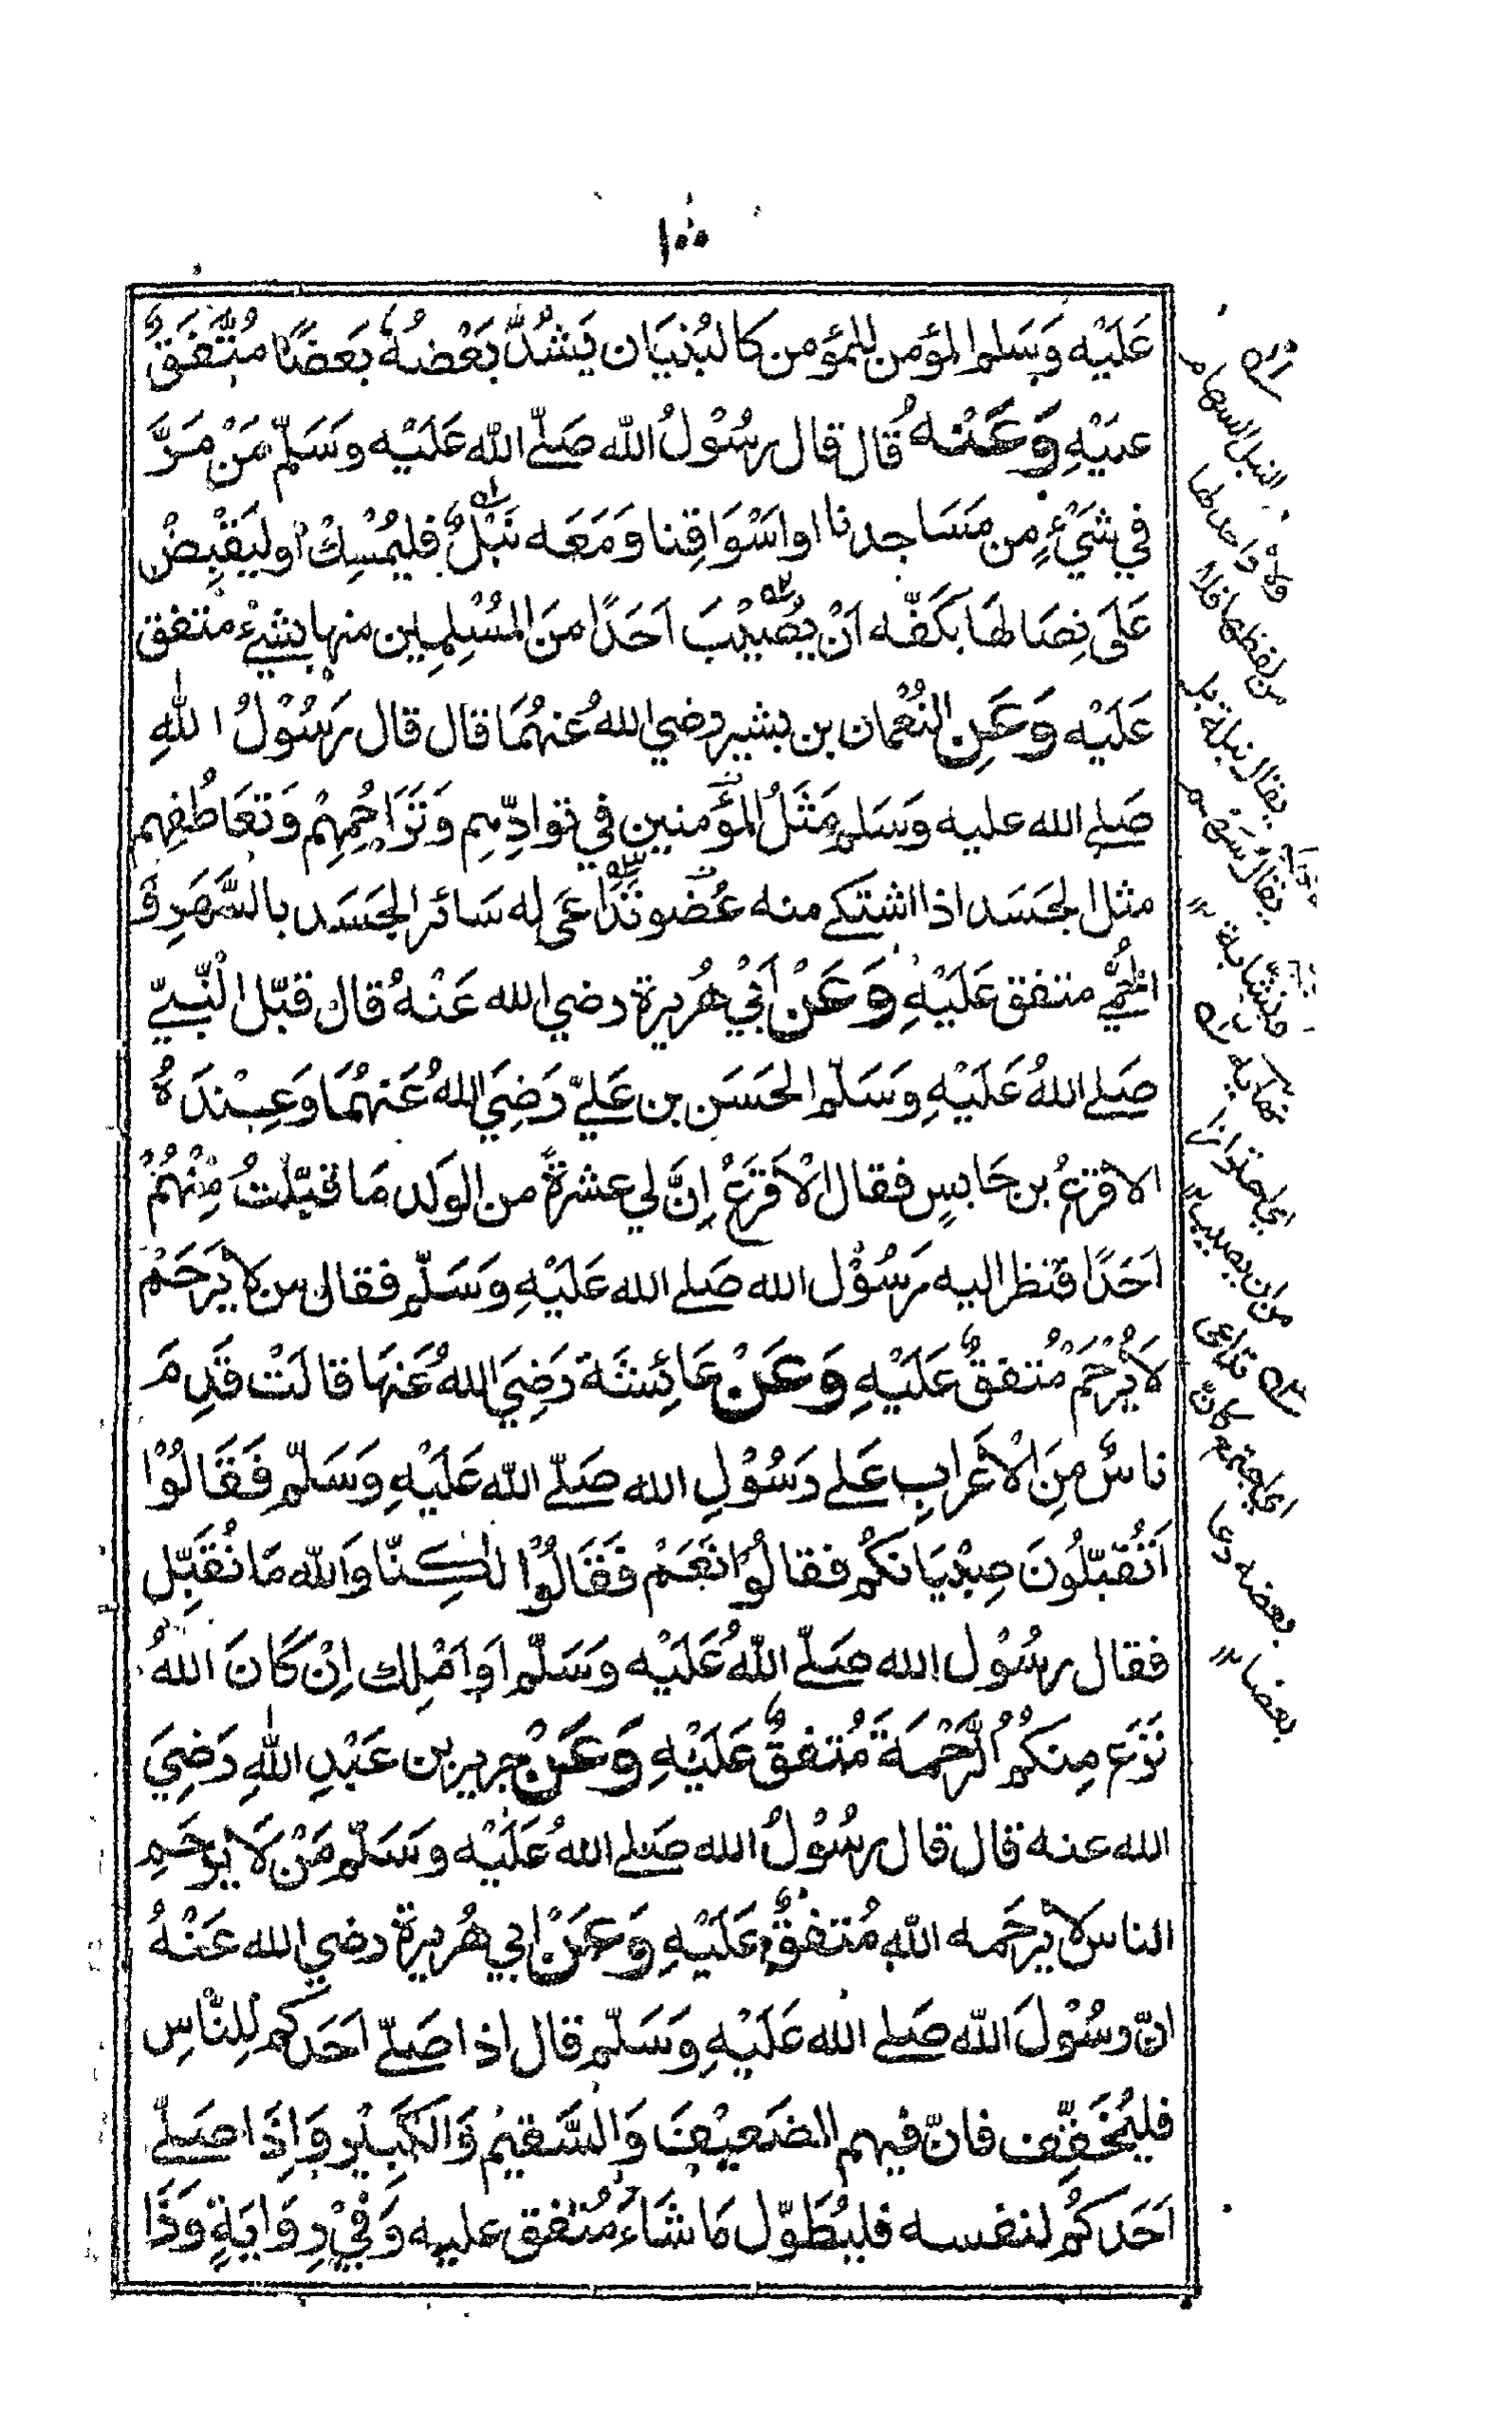 ١٠٠
عَلَيْهِ وَسَلم المؤمن للمؤمن كالبُنْيَان يَشُدُّ بَعْضُهُ بَعضًا مُتَّفَقٌ
عليْهِ وَعَنْه قَال قال رسُوْلُ الله صَلّى الله عَلَيْه وسَلّم مَنْ مَرَّ
في شَيْءٍ مِن مَسَاجدنا او اسْوَاقِنا وَمَعَه نَبْلٌ فليُمْسِكْ اَو ليَقْبِضْ
عَلَى نِصَالهَا بكَفّه اَنْ يصُيْبَ اَحَدًا منَ المُسْلِمِين منها بشيْءٍ متفق
عَلَيْه وَعَنِ النُّعْمان بن بشير رضي اللهُ عنهُمَا قال قال رَسُوْلُ اللهِ
صَلى الله عليه وَسَلم مَثَلُ المؤمنين في توادِّهِم وَتَرَاحُمِهِمْ وَتعَاطُفِهِم
مثل الجَسَد اذا اشتكى منه عُضو تَدَاعَى له سَائر الجَسَد بالسَّهَرِ وَ
الحُمّى متفق عَلَيْهِ وَعَنْ اَبيْ هُريرة رضي الله عَنْهُ قال قبّل النَّبيّ
صَلى اللهُ عَلَيْهِ وَسَلّم الحَسَن بن عَليّ رَضِيَ اللهُ عَنهُمَا وَعِنْدَهُ
الاقرَعُ بن حَابسٍ فقال الْاَقرَعُ اِنَّ لي عشرةً من الوَلد مَا قبّلتُ مِنْهُمْ
اَحَدًا فنظر اليه رَسُوْل الله صَلى الله عَلَيْهِ وَسَلّم فقال من لا يَرْحَمْ
لَا يُرْحَمْ مُتفقٌ عَلَيْهِ وَعَنْ عَائِشَة رَضِيَ اللهُ عَنهَا قالَتْ قَدِمَ
ناسٌ مِنَ الْاَعْرَابِ عَلى رَسُوْلِ الله صَلّى الله عَلَيْهِ وَسَلّم فَقَالُوْا
اَتُقَبّلُونَ صِبْيَانكُم فقالُوْا نَعَمْ فَقَالُوْا لٰكِنّا وَالله مَا نُقَبِّل
فقال رسُوْل الله صَلّى اللهُ عَلَيْه وَسَلّم اَوَ اَمْلِك اِنْ كَانَ اللهُ
نَزَع مِنكُمُ الرَّحْمَةَ مُتفقٌ عَلَيْهِ وَعَنْ جرير بن عَبْدِ اللهِ رَضِيَ
الله عنه قال قال رسُوْلُ الله صَلى اللهُ عَلَيْه وسَلّم مَنْ لَا يرْحَمِ
الناسَ لا يرحَمه الله مُتفقٌ عَلَيْهِ وَعَنْ ابي هُريرة رضي الله عَنْهُ
انّ رسُوْلَ الله صَلى الله عَلَيْهِ وَسَلّم قال اذا صَلّى اَحَدكم لِلنَّاسِ
فليُخَفِّف فانّ فيهم الضعيْفَ وَالسَّقيْمَ وَالكَبيْر وَاِذَا صَلّى
اَحَدكُم لنفسه فليُطَوّل مَا شَاءَ مُتفق عليه وَفيْ رِوَايَةٍ وَذَا
النبل السهام
ولا واحد لها
من لفظها فلا
يقال نبلة بل
يقال سهم
ونشابة
نهاية
من ان يصيب
تداعى
اي اجتمع كان
بعضه دعا
بعضا